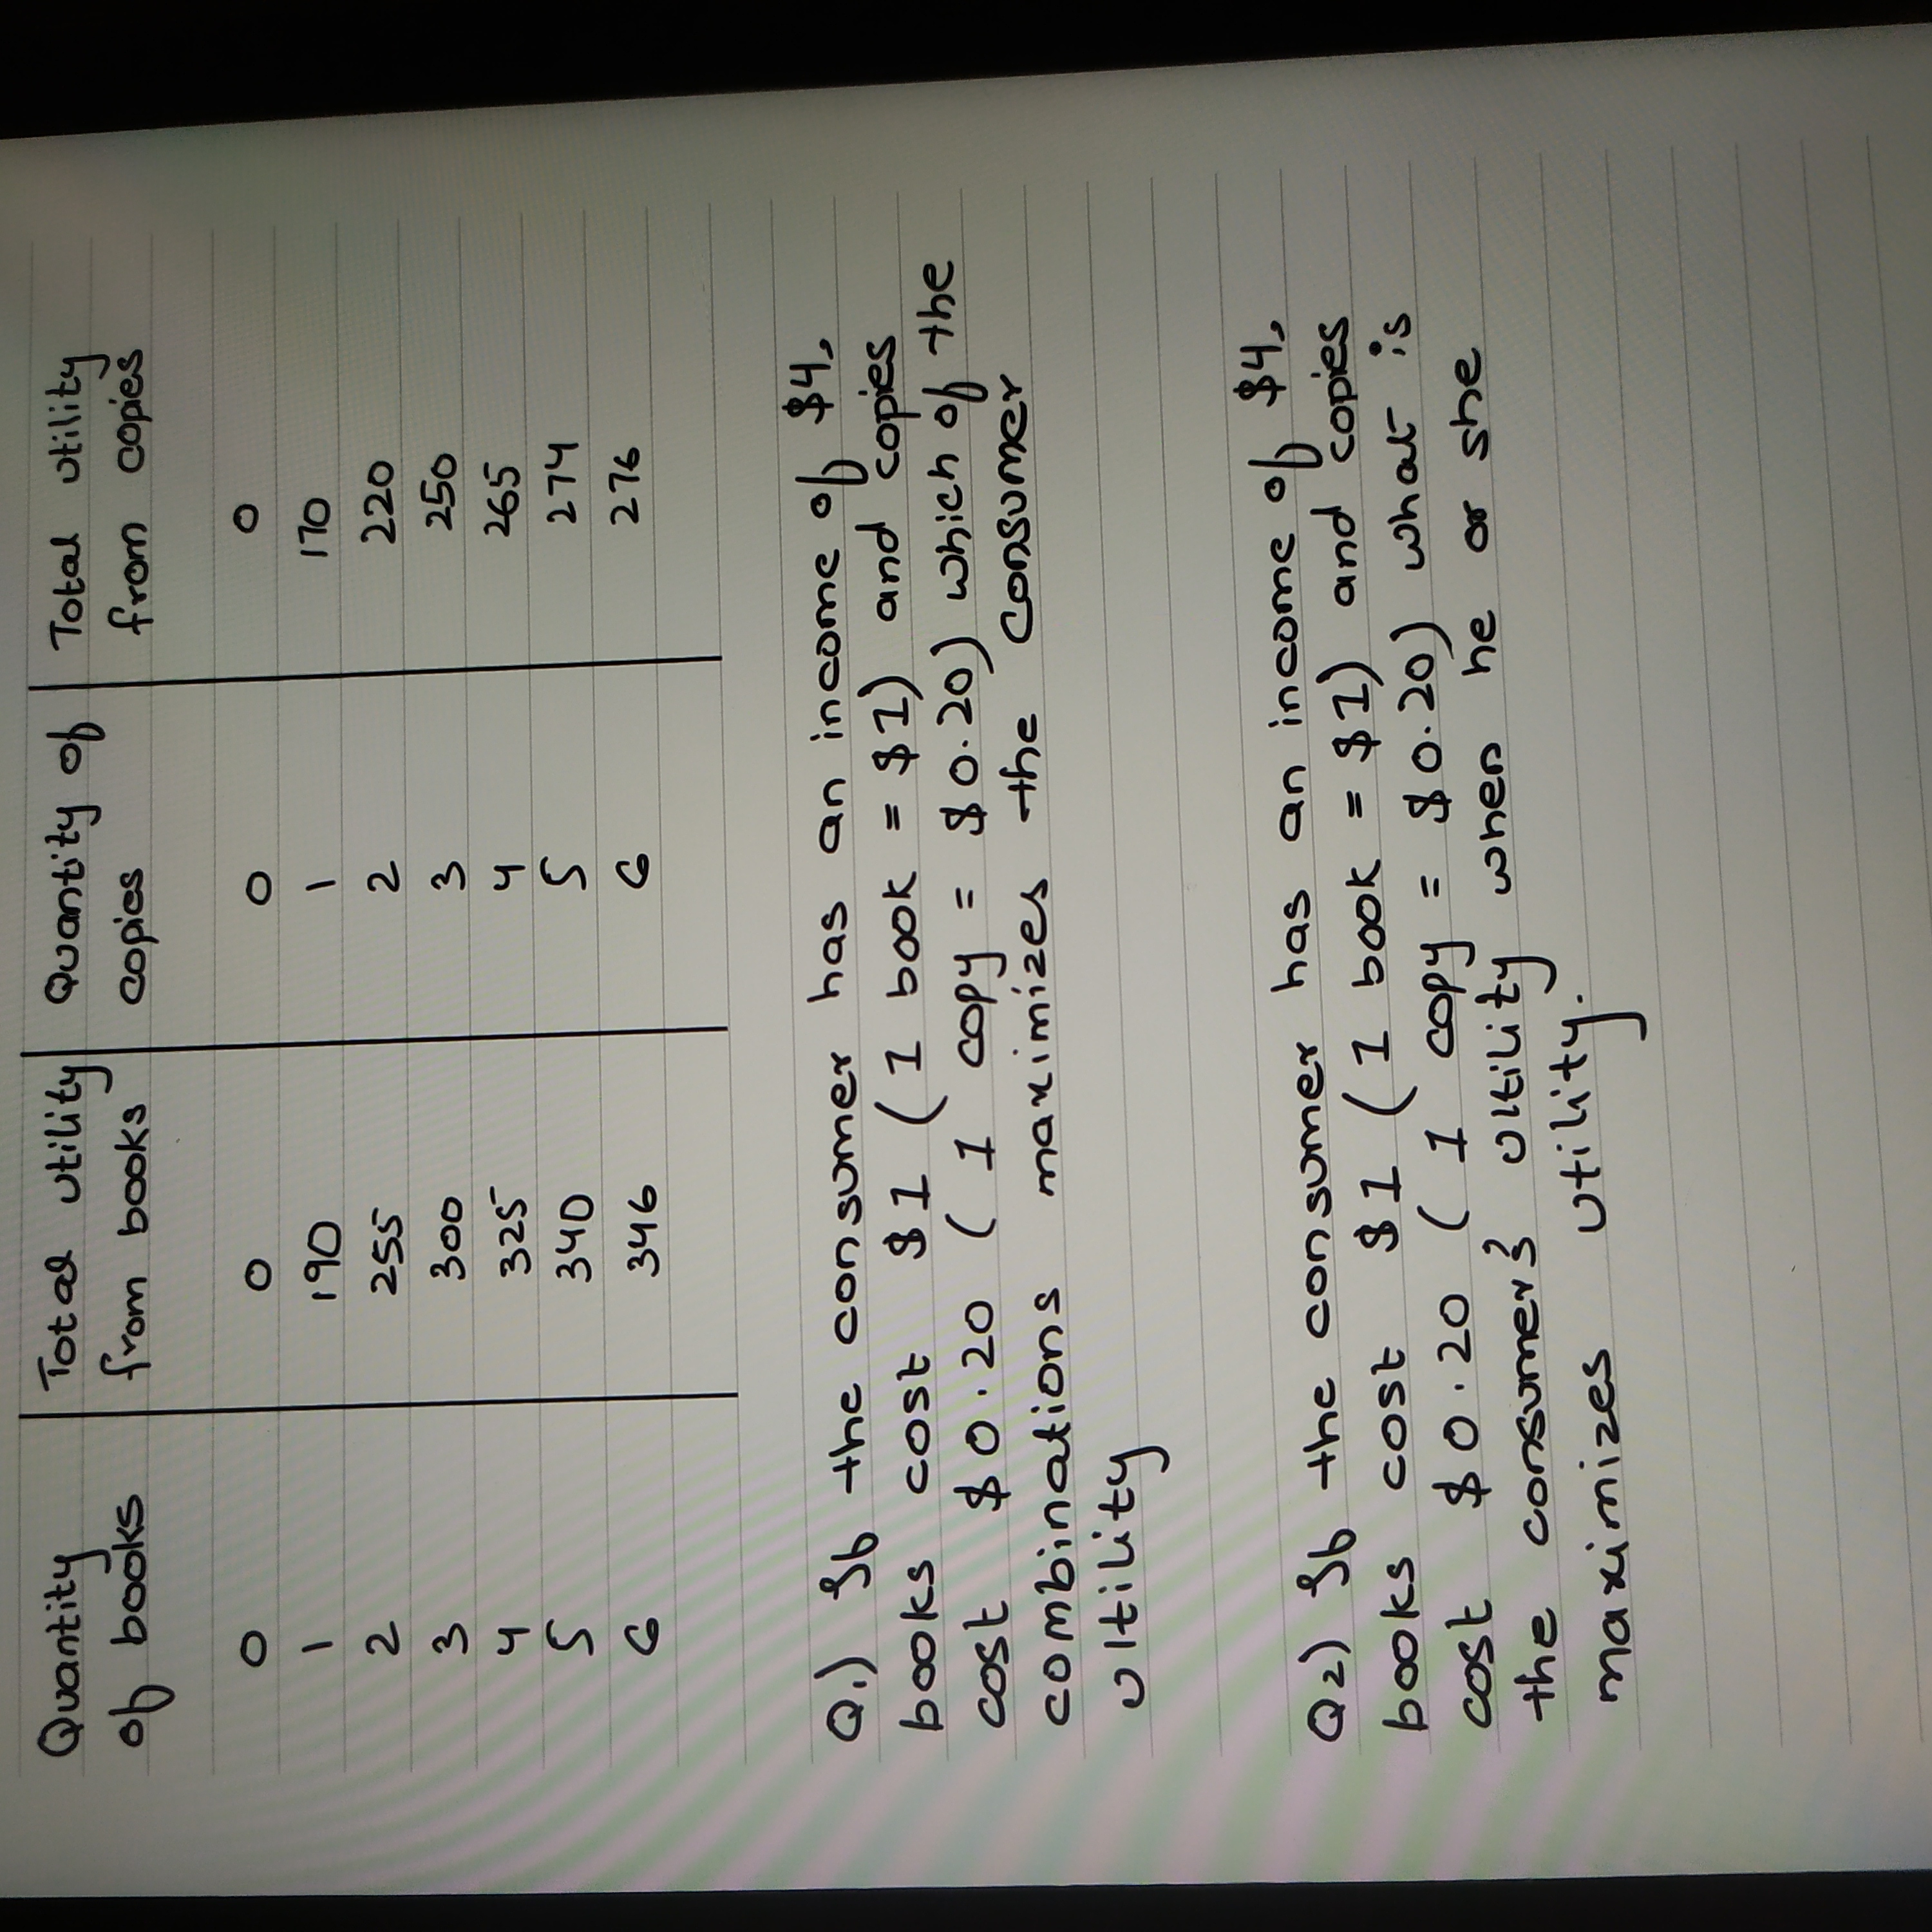 Quantity of books | Total utility from books | Quantity of copies | Total utility from copies
0 | 0 | 0 | 0
1 | 190 | 1 | 170
2 | 255 | 2 | 220
3 | 300 | 3 | 250
4 | 325 | 4 | 265
5 | 340 | 5 | 274
6 | 346 | 6 | 276
Q.1) If the consumer has an income of $4,
books cost $1 (1 book = $1) and copies
cost $0.20 (1 copy = $0.20) which of the
combinations maximizes the consumer
ultility
Q2) If the consumer has an income of $4,
books cost $1 (1 book = $1) and copies
cost $0.20 (1 copy = $0.20) what is
the consumer's ultility when he or she
maximizes utility.